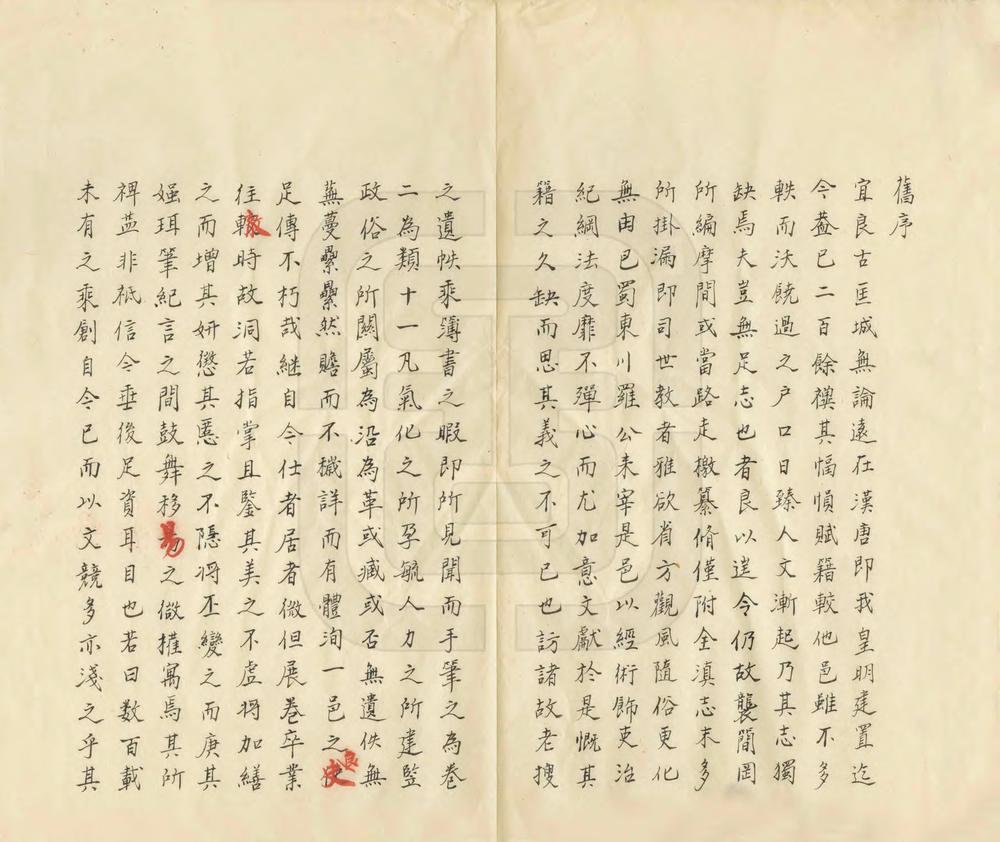 舊序
宜良古匡城無論遠在漢唐即我皇明建置迄
今葢已二百餘禩其幅㥃賦籍較他邑雖不多
軼而沃饒過之户口日臻人文漸起乃其志獨
缺焉夫豈無足志也者良以迄今仍故襲簡罔
所編摩間或當路走檄纂脩僅附全滇志末多
所掛漏即司世教者雅欲省方觀風隨俗更化
無由已蜀東川羅公来宰是邑以經術飾吏治
紀綱法度靡不殫心而尤加意文獻於是慨其
籍之久缺而思其義之不可已也訪諸故老搜
之遺帙乘簿書之暇即所見聞而手筆之為卷
二為類十一凡氣化之所孕毓人力之所建監
政俗之所關屬為沿為革或臧或否無遺佚無
蕪蔓纍纍然贍而不穢詳而有體洵一邑之良史
足傳不朽哉継自今仕者居者微但展卷卒業
往轍時故洞若指掌且鑒其美之不虛将加繕
之而增其妍懲其慝之不隱将丕變之而庚其
媸珥筆紀言之間鼓舞移易之微擁寓焉其所
禆葢非祇信今垂後足資耳目也若曰数百載
未有之乘創自今已而以文競多亦淺之乎其